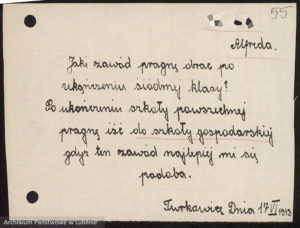 55
Alfreda.
Jaki zawód pragnę obrać po
ukończeniu siódmej klasy?
Po ukończeniu szkoły powszechnej
pragnę iść do szkoły gospodarskiej
gdyż ten zawód najlepiej mi się
podoba.
Turkowice, Dnia 17 VI
Archiwum Państwowe w Lublinie